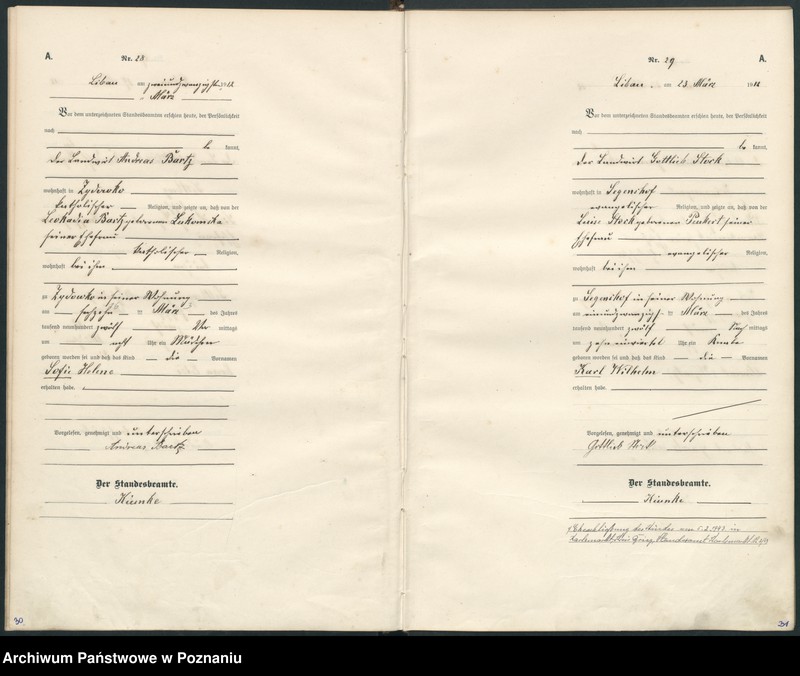 A.
Nr. 28
Liban am zweiundzwanzigsten 1912
März
Vor dem unterzeichneten Standesbeamten erschien heute, der Persönlichkeit
nach
kannt,
der Landwirt Andreas Bartz
wohnhaft in Zydowko
katholischer Religion, und zeigte an, daß von der
Leokadia Bartz geborenen
seiner Ehefrau
katholischer Religion,
wohnhaft bei ihm
zu Zydowko in seiner Wohnung
am sechzehn ten März des Jahres
tausend neunhundert zwölf Vor mittags
um acht Uhr ein Mädchen
geboren worden sei und daß das Kind die Vornamen
Sofie Helene
erhalten habe.
Vorgelesen, genehmigt und unterschrieben
Andreas Bartz
Der Standesbeamte.
30
Nr. 29
A.
Liban am 23 März 1912
Vor dem unterzeichneten Standesbeamten erschien heute, der Persönlichkeit
nach
kannt,
der Landwirt Gottlieb Stock
wohnhaft in Segenshof
evangelischer Religion, und zeigte an, daß von der
Luise Stock geborenen seiner
Ehefrau
evangelischer Religion,
wohnhaft bei ihm
zu Segenshof in seiner Wohnung
am einundzwanzigsten März des Jahres
tausend neunhundert zwölf Nach mittags
um zehn einviertel Uhr ein Knabe
geboren worden sei und daß das Kind die Vornamen
Karl Wilhelm
erhalten habe.
Vorgelesen, genehmigt und unterschrieben
Gottlieb Stock
Der Standesbeamte.
Eheschließung des Kindes am 5.2.1943 in
31
Archiwum Państwowe w Poznaniu